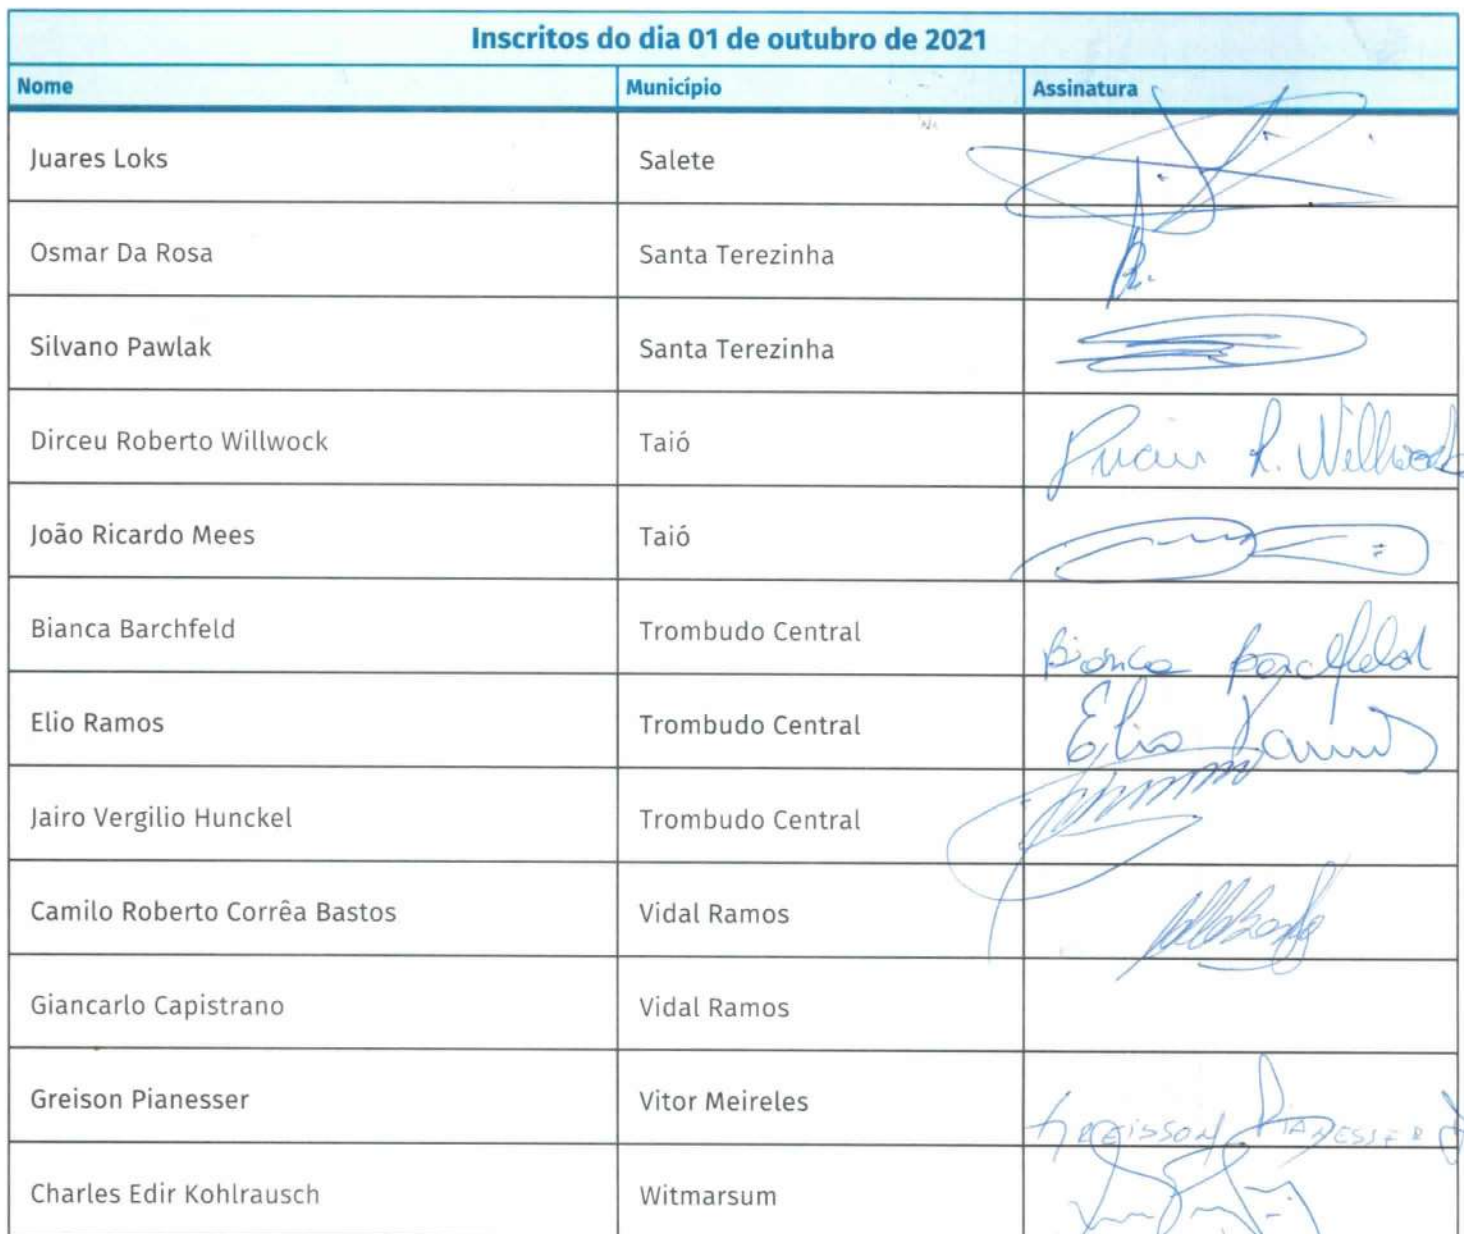 Inscritos do dia 01 de outubro de 2021
Nome Município Assinatura
Juares Loks Salete
Osmar Da Rosa Santa Terezinha
Silvano Pawlak Santa Terezinha
Dirceu Roberto Willwock Taió R. Willwock
João Ricardo Mees Taió
Bianca Barchfeld Trombudo Central Bianca Barchfeld
Elio Ramos Trombudo Central Elio Ramos
Jairo Vergilio Hunckel Trombudo Central
Camilo Roberto Corrêa Bastos Vidal Ramos
Giancarlo Capistrano Vidal Ramos
Greison Pianesser Vitor Meireles GREISSON PIANESSER
Charles Edir Kohlrausch Witmarsum